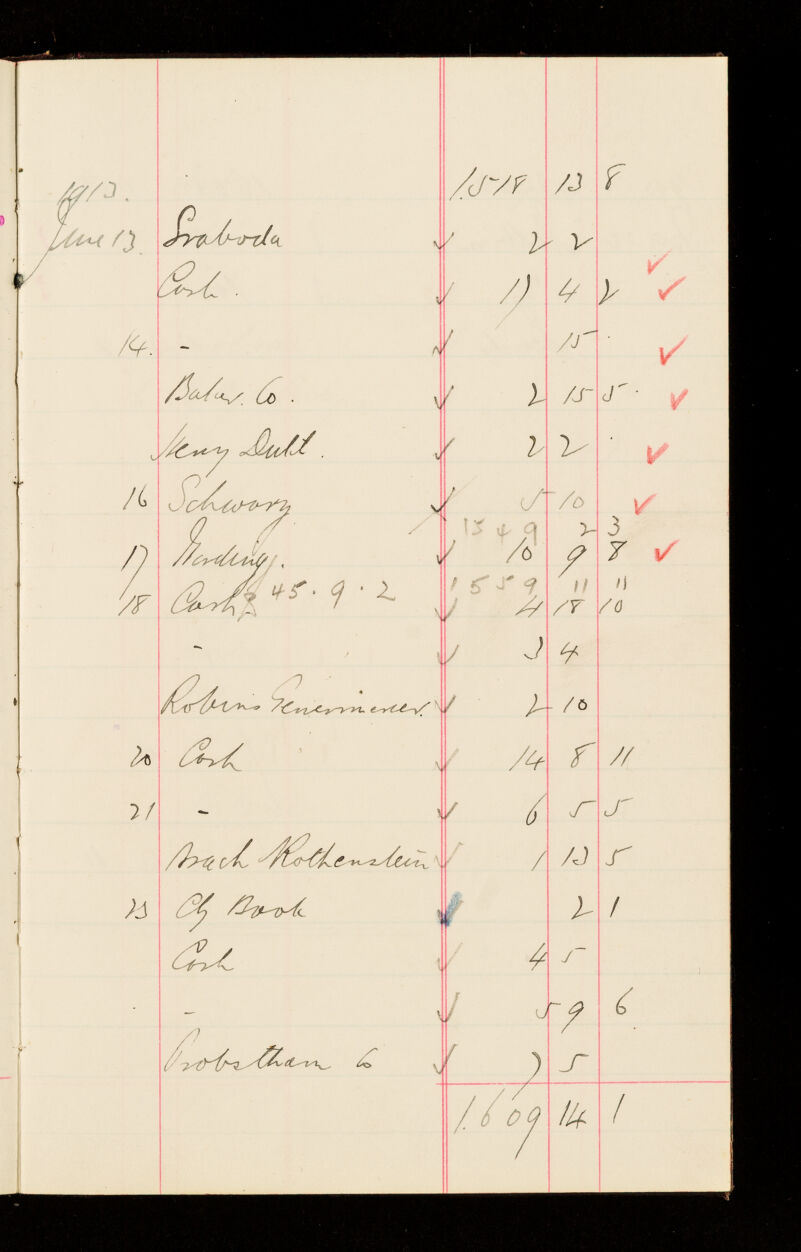 1913. 1.518 13 8
June 13. Svaboda ✓ 2 2
Cash. ✓ 17 4 2 ✓
14. - ✓ 15 ✓
Baker. Co. ✓ 2 15 5 ✓
Henry ✓ 2 2 ✓
16 Schwarz ✓ 5 10 ✓
1549 2 3
17 ✓ 10 9 8 ✓
1559 11 11
18 Cash 45.9.2 ✓ 4 18 10
- ✓ 3 4
Robins ✓ 2 10
20 Cash ✓ 14 8 11
21 - ✓ 6 5 5
Rothenstein ✓ 1 13 5
23 Chq Book ✓ 2 1
Cash ✓ 4 5
- ✓ 5 9 6
Probsthain Co ✓ 7 5
1.609 14 1